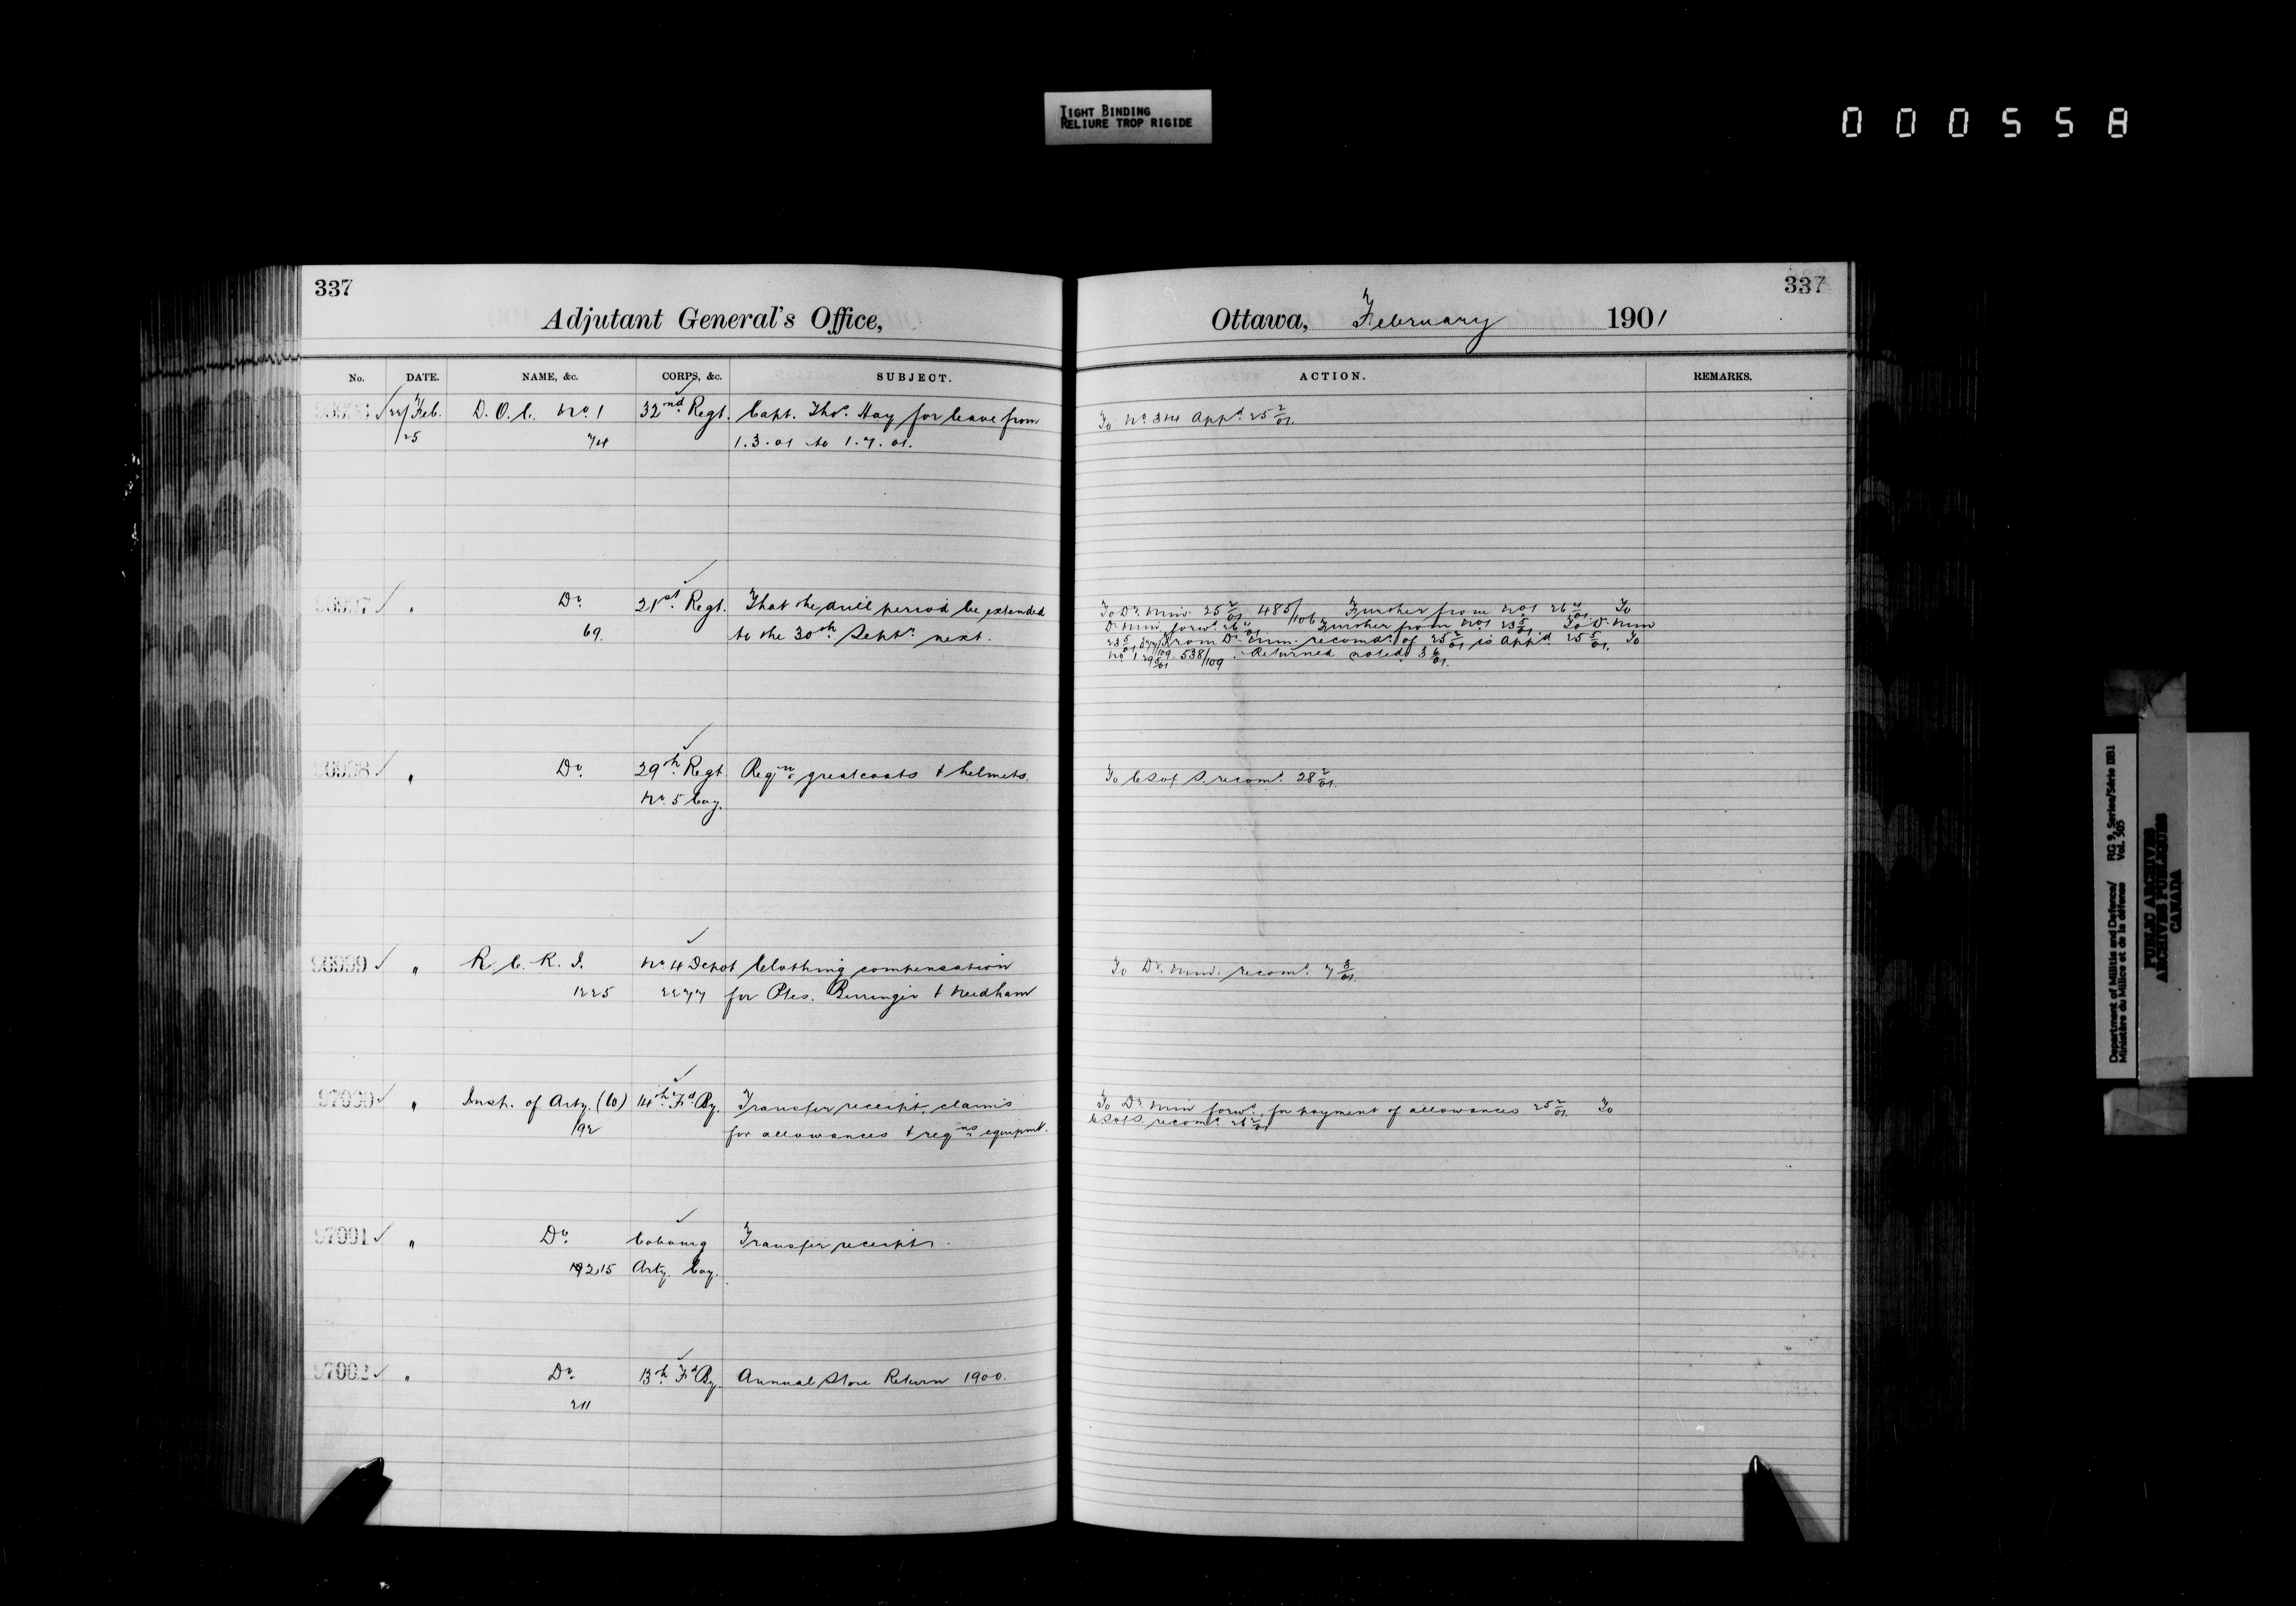 TIGHT BINDING
RELIURE TROP RIGIDE
000558
337
Adjutant General's Office,
No. DATE. NAME, &c. CORPS, &c. SUBJECT.
96996 Feb. D. O. C. No. 1 32nd Regt. Capt. Thos. Hay for leave from
/25 74 1.3.01 to 1.7.01.
96997 " Do. 21st Regt. That the drill period be extended
69. to the 30th Septr. next.
96998 " Do. 29th Regt. Reqn. greatcoats & helmets.
No. 5 Coy.
96999 " R. C. R. I. No. 4 Depot Clothing compensation
1225 2277 for Ptes. Berringer & Needham
97000 " Insp. of Arty. (W) 14th Fd. By. Transfer receipt, claims
192 for allowances & reqns. equipmt.
97001 " Do. Cobourg Transfer receipts.
19215 Arty. Coy.
97002 " Do. 13th Fd. By. Annual Store Return 1900.
211
337
Ottawa, February 1901
ACTION. REMARKS.
To No. 344 Appd. 25 2/01.
To D. Min. 25 2/01 485/106 Further from No 1 26 4/01. To
D. Min forwd. 26 4/01 Further from No 1 23 5/01. To D. Min
23 5/01 From D. Min. recomd. of 25 2/01 is appd. 25 5/01. To
No. 1 29 5/01 538/109. Returned noted 3 6/01.
To C.S. of S. recomd. 28 2/01.
To D. Min. recomd. 7 3/01.
To D. Min forwd. for payment of allowances 25 2/01. To
C.S. of S. recomd. 25 2/01
Department of Militia and Defence/ RG 9, Series/Série IIB1
Ministère du Milice et de la défense Vol. 505
PUBLIC ARCHIVES
ARCHIVES PUBLIQUES
CANADA